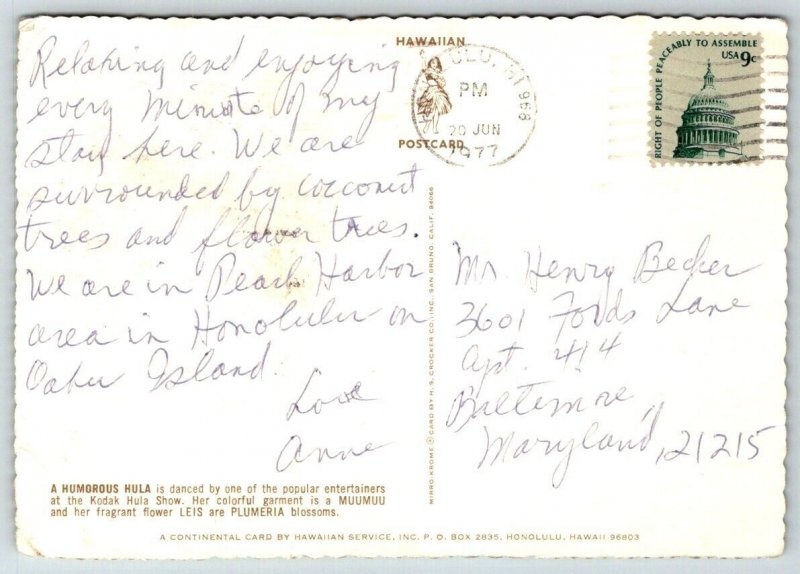 Relaxing and enjoying
every minute of my
stay here. We are
surrounded by coconut
trees and flower trees.
We are in Pearl Harbor
area in Honolulu on
Oahu Island.
Love
Anne
A HUMOROUS HULA is danced by one of the popular entertainers
at the Kodak Hula Show. Her colorful garment is a MUUMUU
and her fragrant flower LEIS are PLUMERIA blossoms.
HAWAIIAN
POSTCARD
MIRRO-KROME ® CARD BY H. S. CROCKER CO., INC. SAN BRUNO, CALIF. 94066
LULU, HI 968
PM
20 JUN
1977
RIGHT OF PEOPLE PEACEABLY TO ASSEMBLE
USA 9c
Mr. Henry Becker
3601 Fords Lane
Apt. 414
Baltimore,
Maryland, 21215
A CONTINENTAL CARD BY HAWAIIAN SERVICE, INC. P. O. BOX 2835, HONOLULU, HAWAII 96803